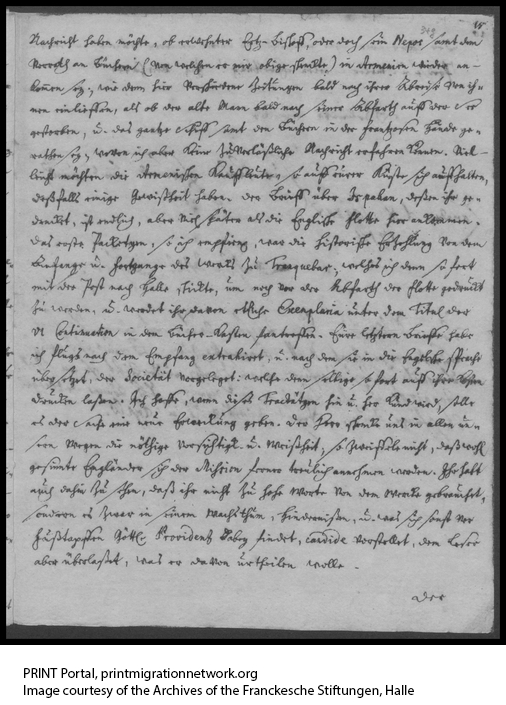 15
Nachricht haben möchte, ob erwehnter Ertz-Bischoff, oder doch sein Nepos samt dem
Vorrath an Büchern (von welchen er mir obige schickte) in Armenien wieder an-
kommen sey, wie denn hier Zeitungen bald nach ihrer Abreyse von ih-
nen einlieffen, als ob der alte Mann bald nach seiner Abfarth auff der See
gestorben, u. das gantze Schiff samt den Büchern in der Frantzosen Hände ge-
rathen sey, wovon ich aber keine zuverläßliche Nachricht erfahren können. Viel-
leicht möchten die Armenischen Kauffleute, so auff eurer Küste sich auffhalten,
deßfalls einige Gewißheit haben. Der Brieff über Ispahan, deßen ihr ge-
dencket, ist endlich, aber viel später als die Englische Flotte hier ankommen.
Das erste Packetgen, so ich empfieng, war die Historische Erzehlung von dem
Anfange u. Fortgange des Wercks zu Tranquebar, welches ich denn so fort
mit der Post nach Halle schickte, um noch vor der Abfarth der Flotte gedruckt
zu werden, u. werdet ihr davon etliche Exemplaria unter dem Titel der
VI Continuation in den Bücher-Kasten antreffen. Eure letztern Brieffe habe
ich flugs nach dem Empfang extrahiret, u. nach dem sie in die Englische Sprache
übersetzet, der Societät vorgeleget: welche denn selbige so fort auff ihre Kosten
drucken lassen. Ich hoffe, wenn diese Tractätgen hin u. her kund wird, solle
es der Sache eine neue Erweckung geben. Der Herr schencke uns in allen un-
sern Wegen die nöthige Vorsichtigk. u. Weißheit, so zweiffele nicht, daß wohl
gesinnte Engländer sich der Mission ferner treulich annehmen werden. Ihr habt
auch dahin zu sehen, daß ihr nicht zu hohe Worte von dem Wercke gebrauchet,
sondern es zwar in seinem Wachsthum, Hindernißen, u. was sich sonst vor
Fußstapffen Göttl. Providentz dabey findet, candide vorstellet, dem Leser
aber überlaßet, was er davon urtheilen wolle.
Der
PRINT Portal, printmigrationnetwork.org
Image courtesy of the Archives of the Franckesche Stiftungen, Halle